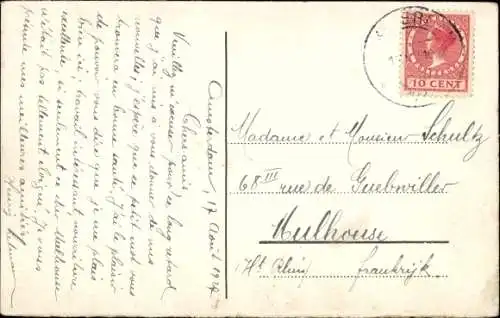 Amsterdam, 17 Août 1927
Chers amis
Veuillez m'excuser pour ce long retard
que j'ai mis à vous donner de mes
nouvelles, j'espère que ce petit mot vous
trouvera en bonne santé. J'ai le plaisir
de pouvoir vous dire que je me plais
bien ici; travail intéressant nourriture
excellente, si seulement ce cher Mulhouse
n'était pas tellement éloigné. Je vous
présente mes meilleures amitiés
10 CENT
Madame et Monsieur Schultz
68 III rue de Guebwiller
Mulhouse
(Ht. Rhin) Frankrijk.